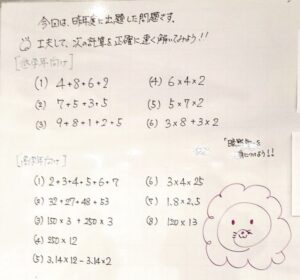 今回は、昨年度に出題した問題です。
工夫して、次の計算を正確に速く解いてみよう!!
[低学年向け]
(1) 4+8+6+2 (4) 6×4×2
(2) 7+5+3+5 (5) 5×7×2
(3) 9+8+1+2+5 (6) 3×8+3×2
[高学年向け]
(1) 2+3+4+5+6+7 (6) 3×4×25
(2) 32+27+48+53 (7) 1.8×2.5
(3) 150×3+250×3 (8) 120×13
(4) 250×12
(5) 3.14×12-3.14×2